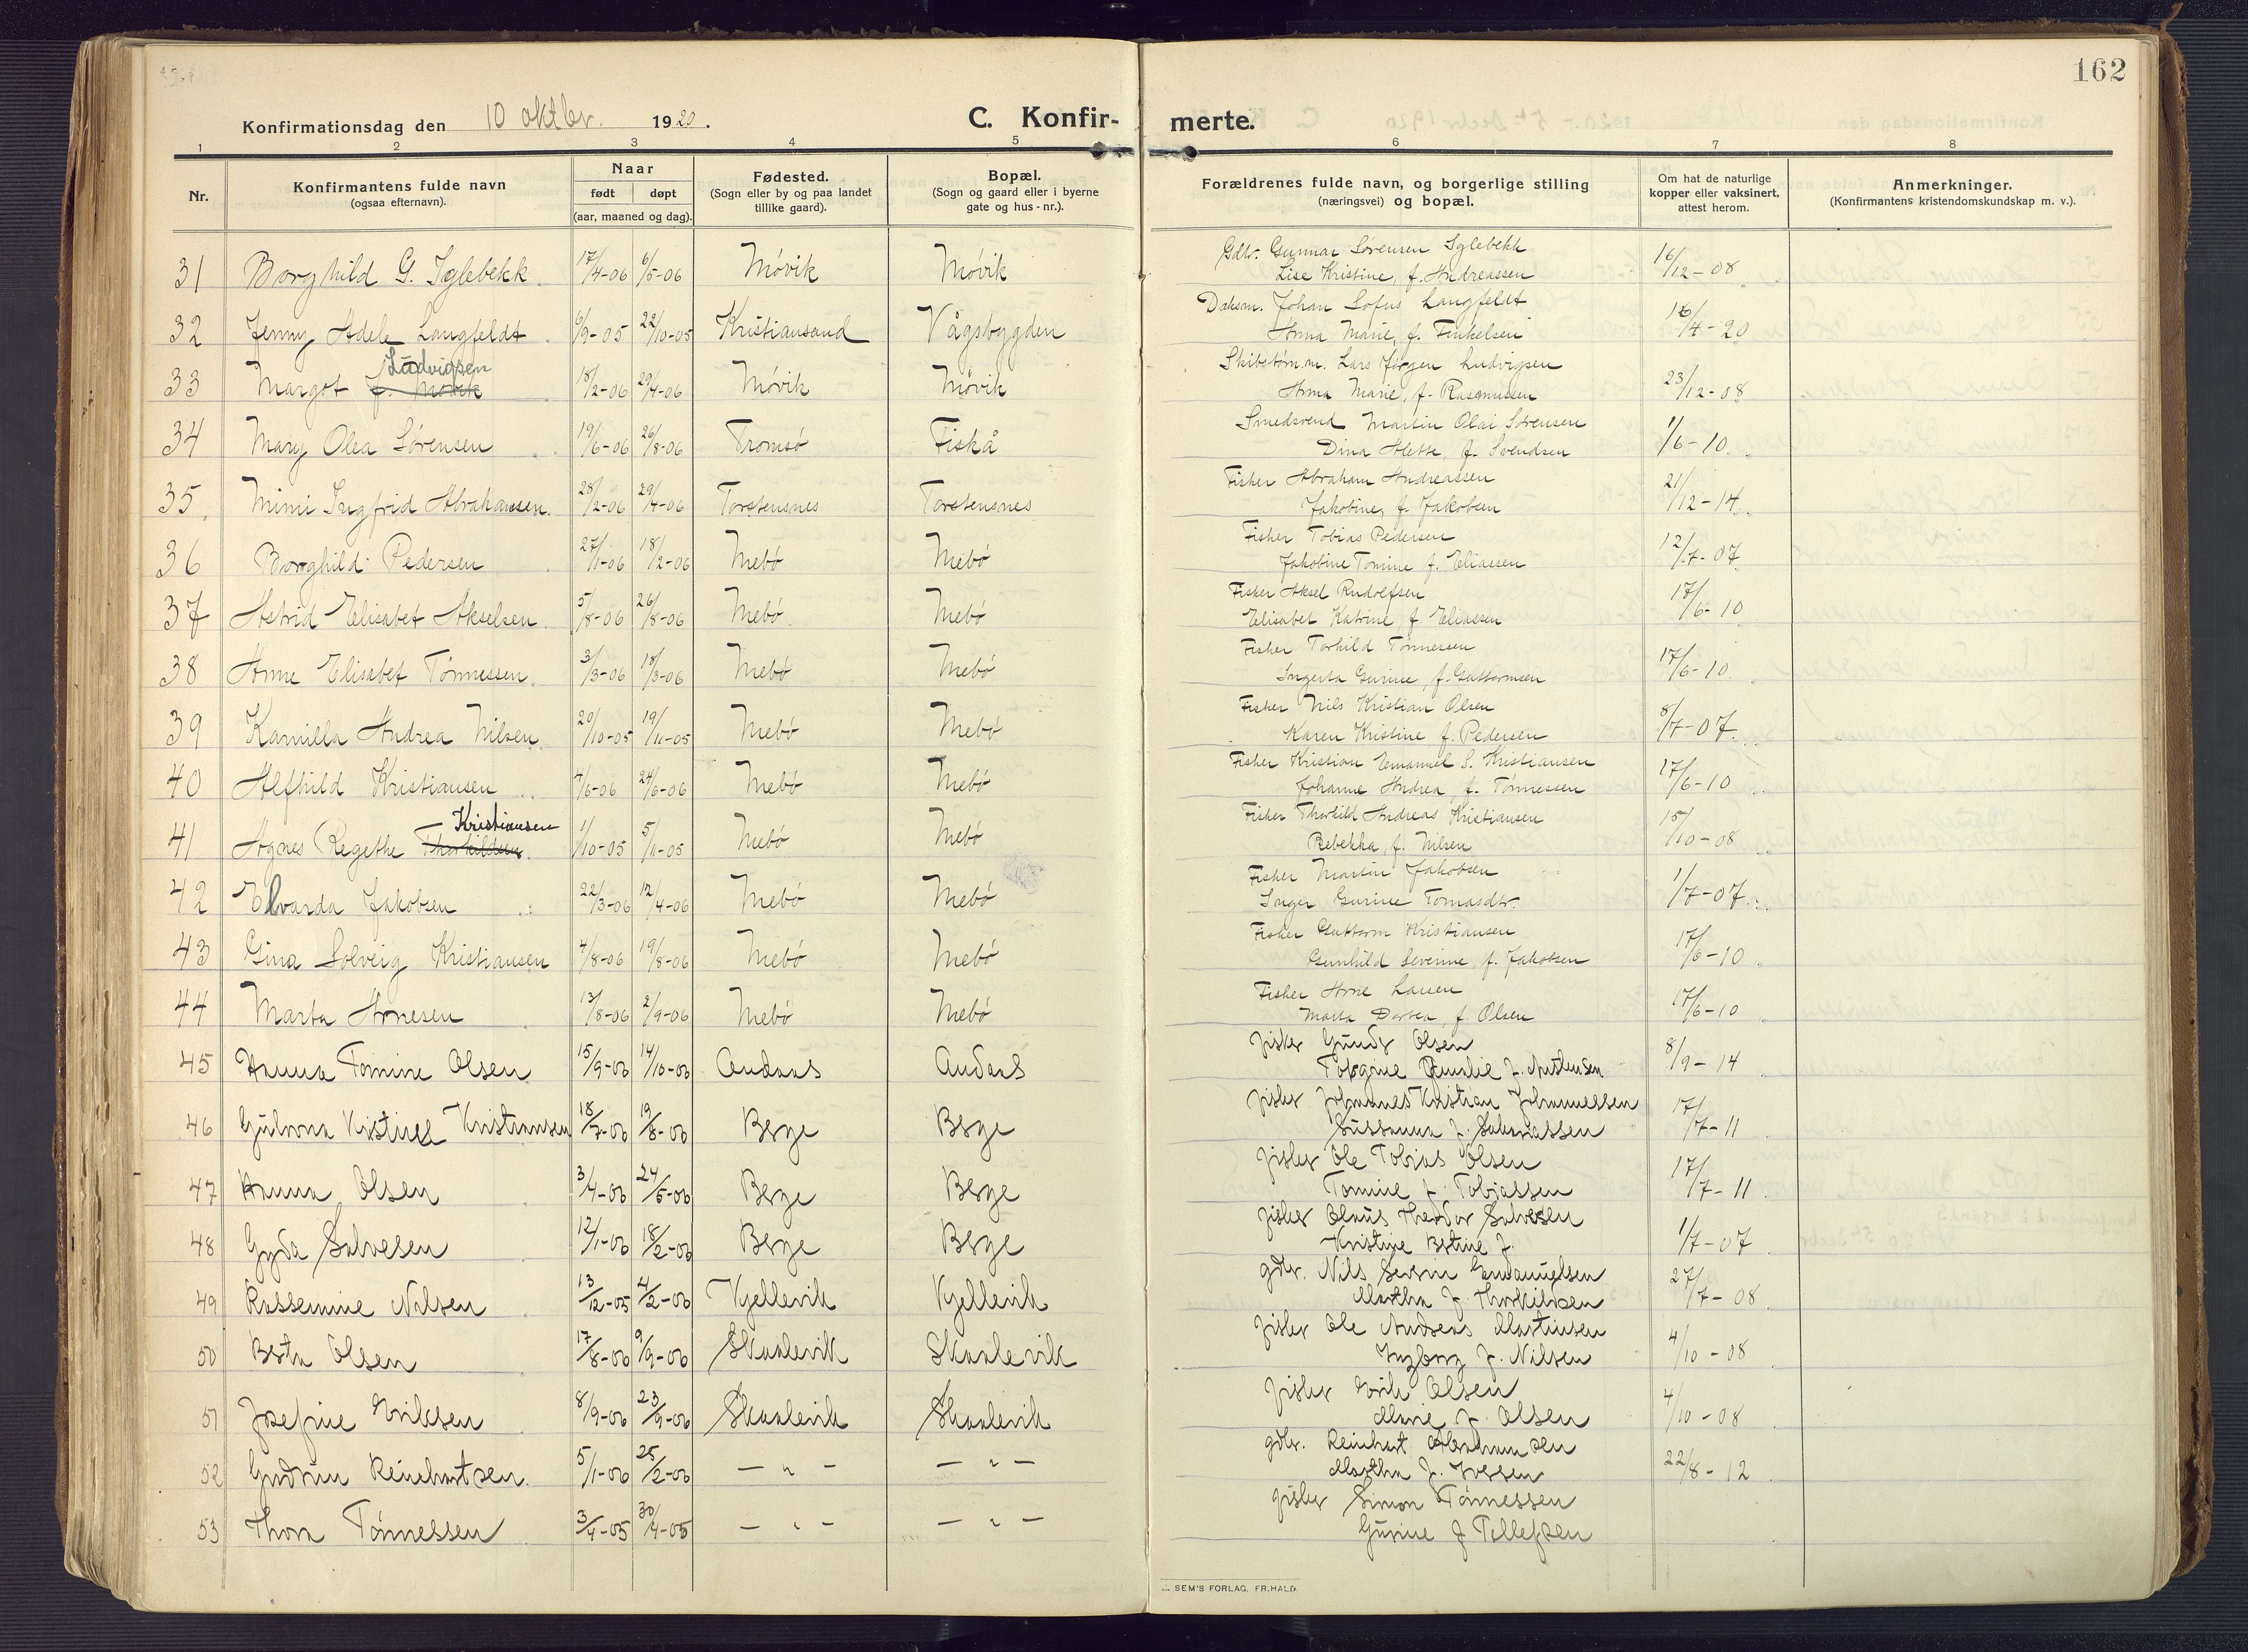 162
Konfirmationsdag den 10 oktbr. 1920.
C. Konfir-
merte.
1 2 3 4 5 6 7 8
Nr.
Konfirmantens fulde navn
(ogsaa efternavn).
Naar
født døpt
(aar, maaned og dag).
Fødested.
(Sogn eller by og paa landet
tillike gaard).
Bopæl.
(Sogn og gaard eller i byerne
gate og hus-nr.).
Forældrenes fulde navn, og borgerlige stilling
(næringsvei) og bopæl.
Om hat de naturlige
kopper eller vaksinert,
attest herom.
Anmerkninger.
(Konfirmantens kristendomskundskap m. v.).
31 Borghild G. Iglebekk 17/4-06 6/5-06 Móvik Móvik Gdbr. Gunnar Sørensen Iglebekk 16/12-08
Lise Kristine, f. Andreassen
32 Jenny Adele Langfeldt 6/9-05 22/10-05 Kristiansand Vågsbygden Daksm. Johan Lofus Langfeldt 16/4-20
Anna Marie, f. Finkelsen
Ludvigsen
33 Margot f. Móvik 18/2-06 29/4-06 Móvik Móvik Skibstøm.m. Lars Jørgen Ludvigsen 23/12-08
Anna Marie, f. Rasmussen
34 Mary Olea Sørensen 19/6-06 26/8-06 Tromsø Fiskå Smedsvend Martin Olai Sørensen 1/6-10
Dina Alette, f. Svendsen
35. Mimi Ingfrid Abrahamsen. 28/2-06 29/4-06 Torstensnes Torstensnes Fisker Abraham Andreassen 21/12-14
Jakobine, f. Jakobsen
36 Borghild Pedersen 27/1-06 18/2-06 Mebó Mebó Fisker Tobias Pedersen 12/7-07
Jakobine Tomine f. Eliassen
37 Astrid Elisabet Akselsen 5/8-06 26/8-06 Mebó Mebó Fisker Aksel Rudolfsen 17/6-10
Elisabet Katrine, f Eliassen
38 Anne Elisabet Tønnessen. 3/3-06 18/3-06 Mebó Mebó Fisker Torkild Tønnesen 17/6-10
Ingerta Gurine, f. Guttormsen
39 Kamilla Andrea Nilsen 20/10-05 19/11-05 Mebó Mebó Fisker Nils Kristian Olsen 8/7-07
Karen Kristine f. Pedersen
40 Alfhild Kristiansen 4/6-06 24/6-06 Mebó Mebó Fisker Kristian Emanuel S. Kristiansen 17/6-10
Johanne Andrea, f. Tønnessen
Kristiansen
41 Agnes Regethe Thorkildsen. 1/10-05 5/11-05 Mebó Mebó Fisker Thorkild Andreas Kristiansen 15/10-08
Rebekka, f. Nilsen
42 Elvarda Jakobsen 22/3-06 12/4-06 Mebó Mebó Fisker Martin Jakobsen 1/7-07
Inger Gurine Tomasdtr.
43 Gina Solveig Kristiansen 4/8-06 19/8-06 Mebó Mebó Fisker Guttorm Kristiansen 17/6-10
Gunhild Severine, f. Jakobsen
44 Marta Arnesen 13/8-06 2/9-06 Mebó Mebó Fisker Arne Larsen 17/6-10
Marta Dortea, f Olsen
45 Hanna Tomine Olsen 15/9-06 14/10-06 Andaas Andaas fisker Gunder Olsen 8/9-14
Amalie f.
46 Gulvina Kristine Kristiansen 18/7-06 19/8-06 Berge Berge fisker Johannes Kristian Johannessen 17/7-11
Sussanna f. Sakariassen
47 Hanna Olsen 3/4-06 24/5-06 Berge Berge fisker Ole Tobias Olsen 17/7-11
Tomine f. Tobiassen
48 Gyda Salvesen 12/1-06 18/2-06 Berge Berge fisker Olaus Theodor Salvesen 1/7-07
Kristine Bertine f.
49 Rassemine Nilsen 13/12-05 4/2-06 Kjellevik Kjellevik gdbr. Nils Severin Emanuelsen 27/7-08
Martha f. Thorkildsen
50 Berta Olsen 17/8-06 9/9-06 Skaalevik Skaalevik fisker Ole Andreas Martinsen 4/10-08
Ingborg f. Nilsen
51 Josefine Eriksen 8/9-06 23/9-06 Skaalevik Skaalevik fisker Erik Olsen 4/10-08
Marie f. Olsen
52 Gudrun Reinhartsen. 5/1-06 25/2-06 - " - - " - gdbr. Reinhart Abrahamsen 22/8-12
Martha f. Iversen
53 Thora Tønnessen 3/4-05 30/4-05 - " - - " - fisker Simon Tønnessen
Gurine f Tellefsen
SEM'S FORLAG, FR.HALD.